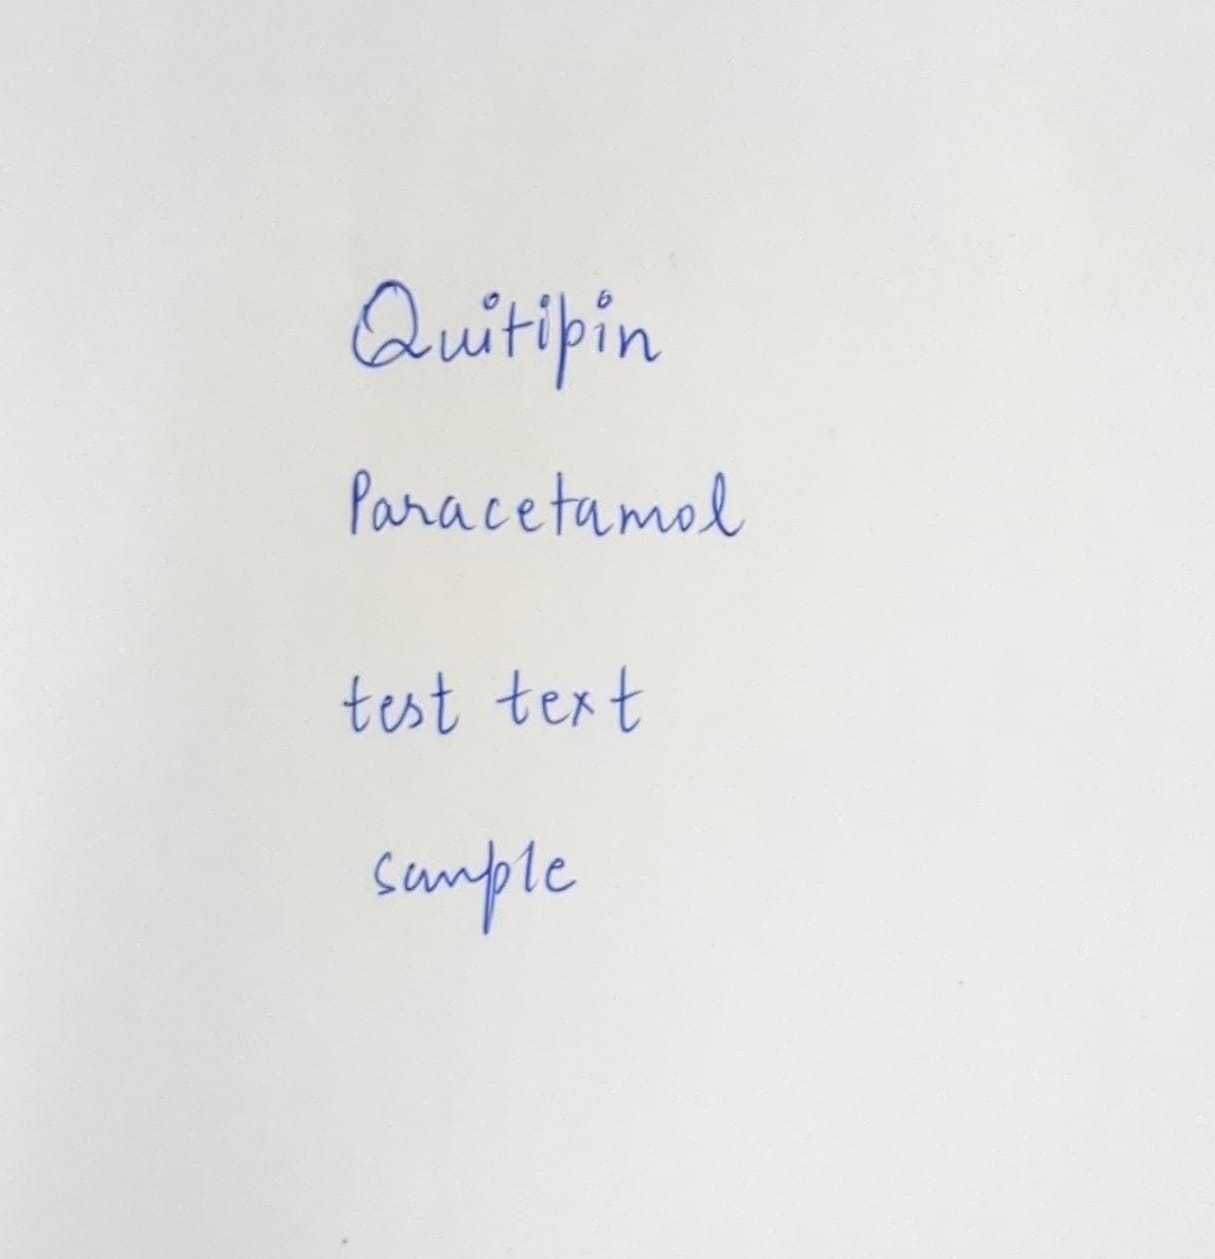 Quitipin
Paracetamol
test text
sample